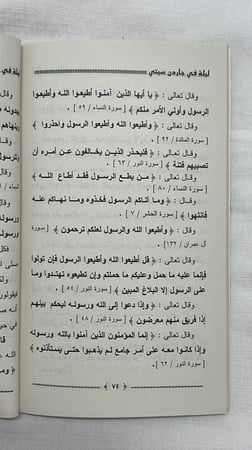 ليلة في جاردن سيتي
وقال تعالى : ﴿ يا أيها الذين آمنوا أطيعوا الله وأطيعوا
الرسول وأولي الأمر منكم ﴾ [ سورة النساء / ٥٩ ] .
وقال تعالى : ﴿ وأطيعوا الله وأطيعوا الرسول واحذروا ﴾
[ سورة المائدة / ٩٢ ] .
وقال تعالى : ﴿ فليحذر الذين يخالفون عن أمره أن
تصيبهم فتنة ﴾ [ سورة النور / ٦٣ ] .
وقال تعالى : ﴿ من يطع الرسول فقد أطاع الله ﴾
[ سورة النساء / ٨٠ ] .
وقال تعالى : ﴿ وما آتاكم الرسول فخذوه وما نهاكم عنه
فانتهوا ﴾ [ سورة الحشر / ٧ ] .
وقال تعالى : ﴿ وأطيعوا الله والرسول لعلكم ترحمون ﴾ [
آل عمران / ١٣٢ ] .
وقال تعالى : ﴿ قل أطيعوا الله وأطيعوا الرسول فإن تولوا
فإنما عليه ما حمل وعليكم ما حملتم وإن تطيعوه تهتدوا وما
على الرسول إلا البلاغ المبين ﴾ [ سورة النور / ٥٤ ] .
وقال تعالى : ﴿ وإذا دعوا إلى الله ورسوله ليحكم بينهم
إذا فريق منهم معرضون ﴾ [ سورة النور / ٤٨ ] .
وقال تعالى : ﴿ إنما المؤمنون الذين آمنوا بالله ورسوله
وإذا كانوا معه على أمر جامع لم يذهبوا حتى يستأذنوه ﴾
[ سورة النور / ٦٢ ] .
٧٤